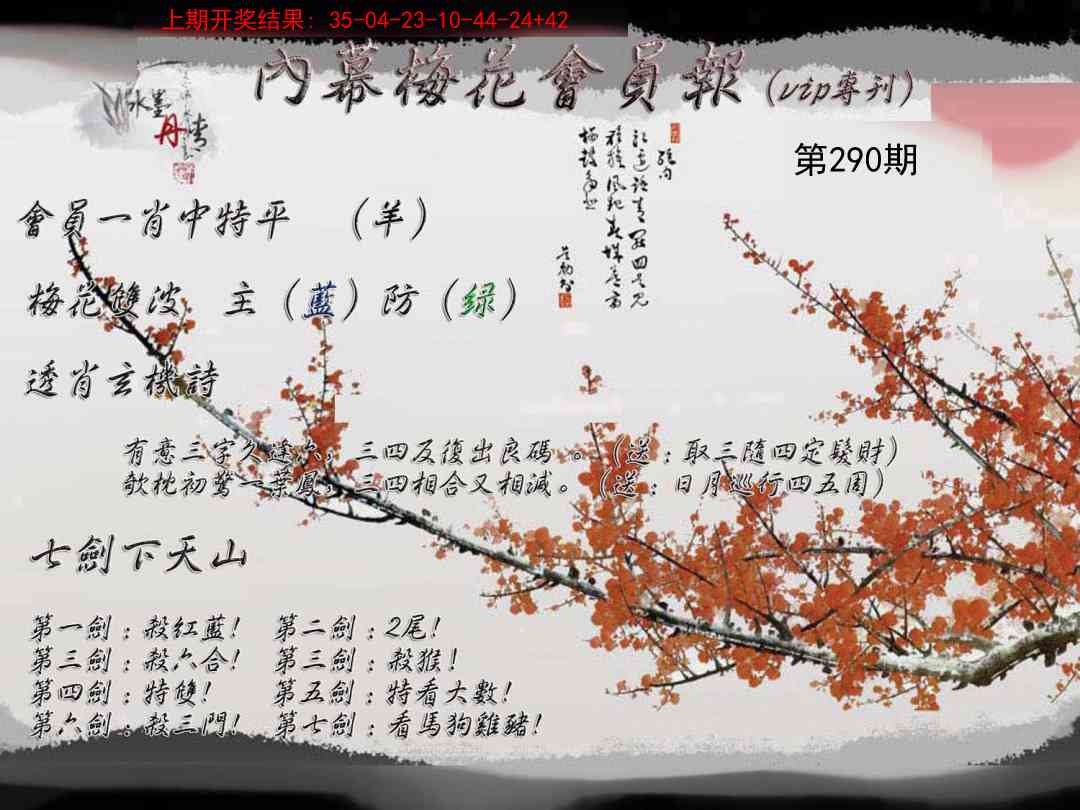 上期开奖结果: 35-04-23-10-44-24+42
內幕梅花會員報(vip專刊)
水墨
丹情
第290期
會員一肖中特平 （羊）
梅花雙波 主（藍）防（绿）
透肖玄機詩
有意三字久逢六，三四及復出良碼。（送：取三隨四定發財）
歌枕初驚一葉鳳，三四相合又相減。（送：日月巡行四五周）
七劍下天山
第一劍：殺紅藍！ 第二劍：2尾！
第三劍：殺六合！ 第三劍：殺猴！
第四劍：特雙！ 第五劍：特看大數！
第六劍：殺三門！ 第七劍：看馬狗雞豬！